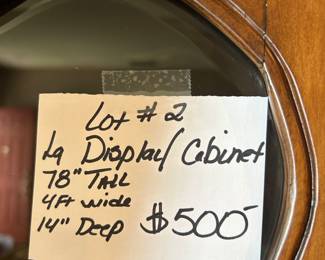 Lot # 2
Lg Display Cabinet
78" TALL
4Ft wide
14" Deep $500-